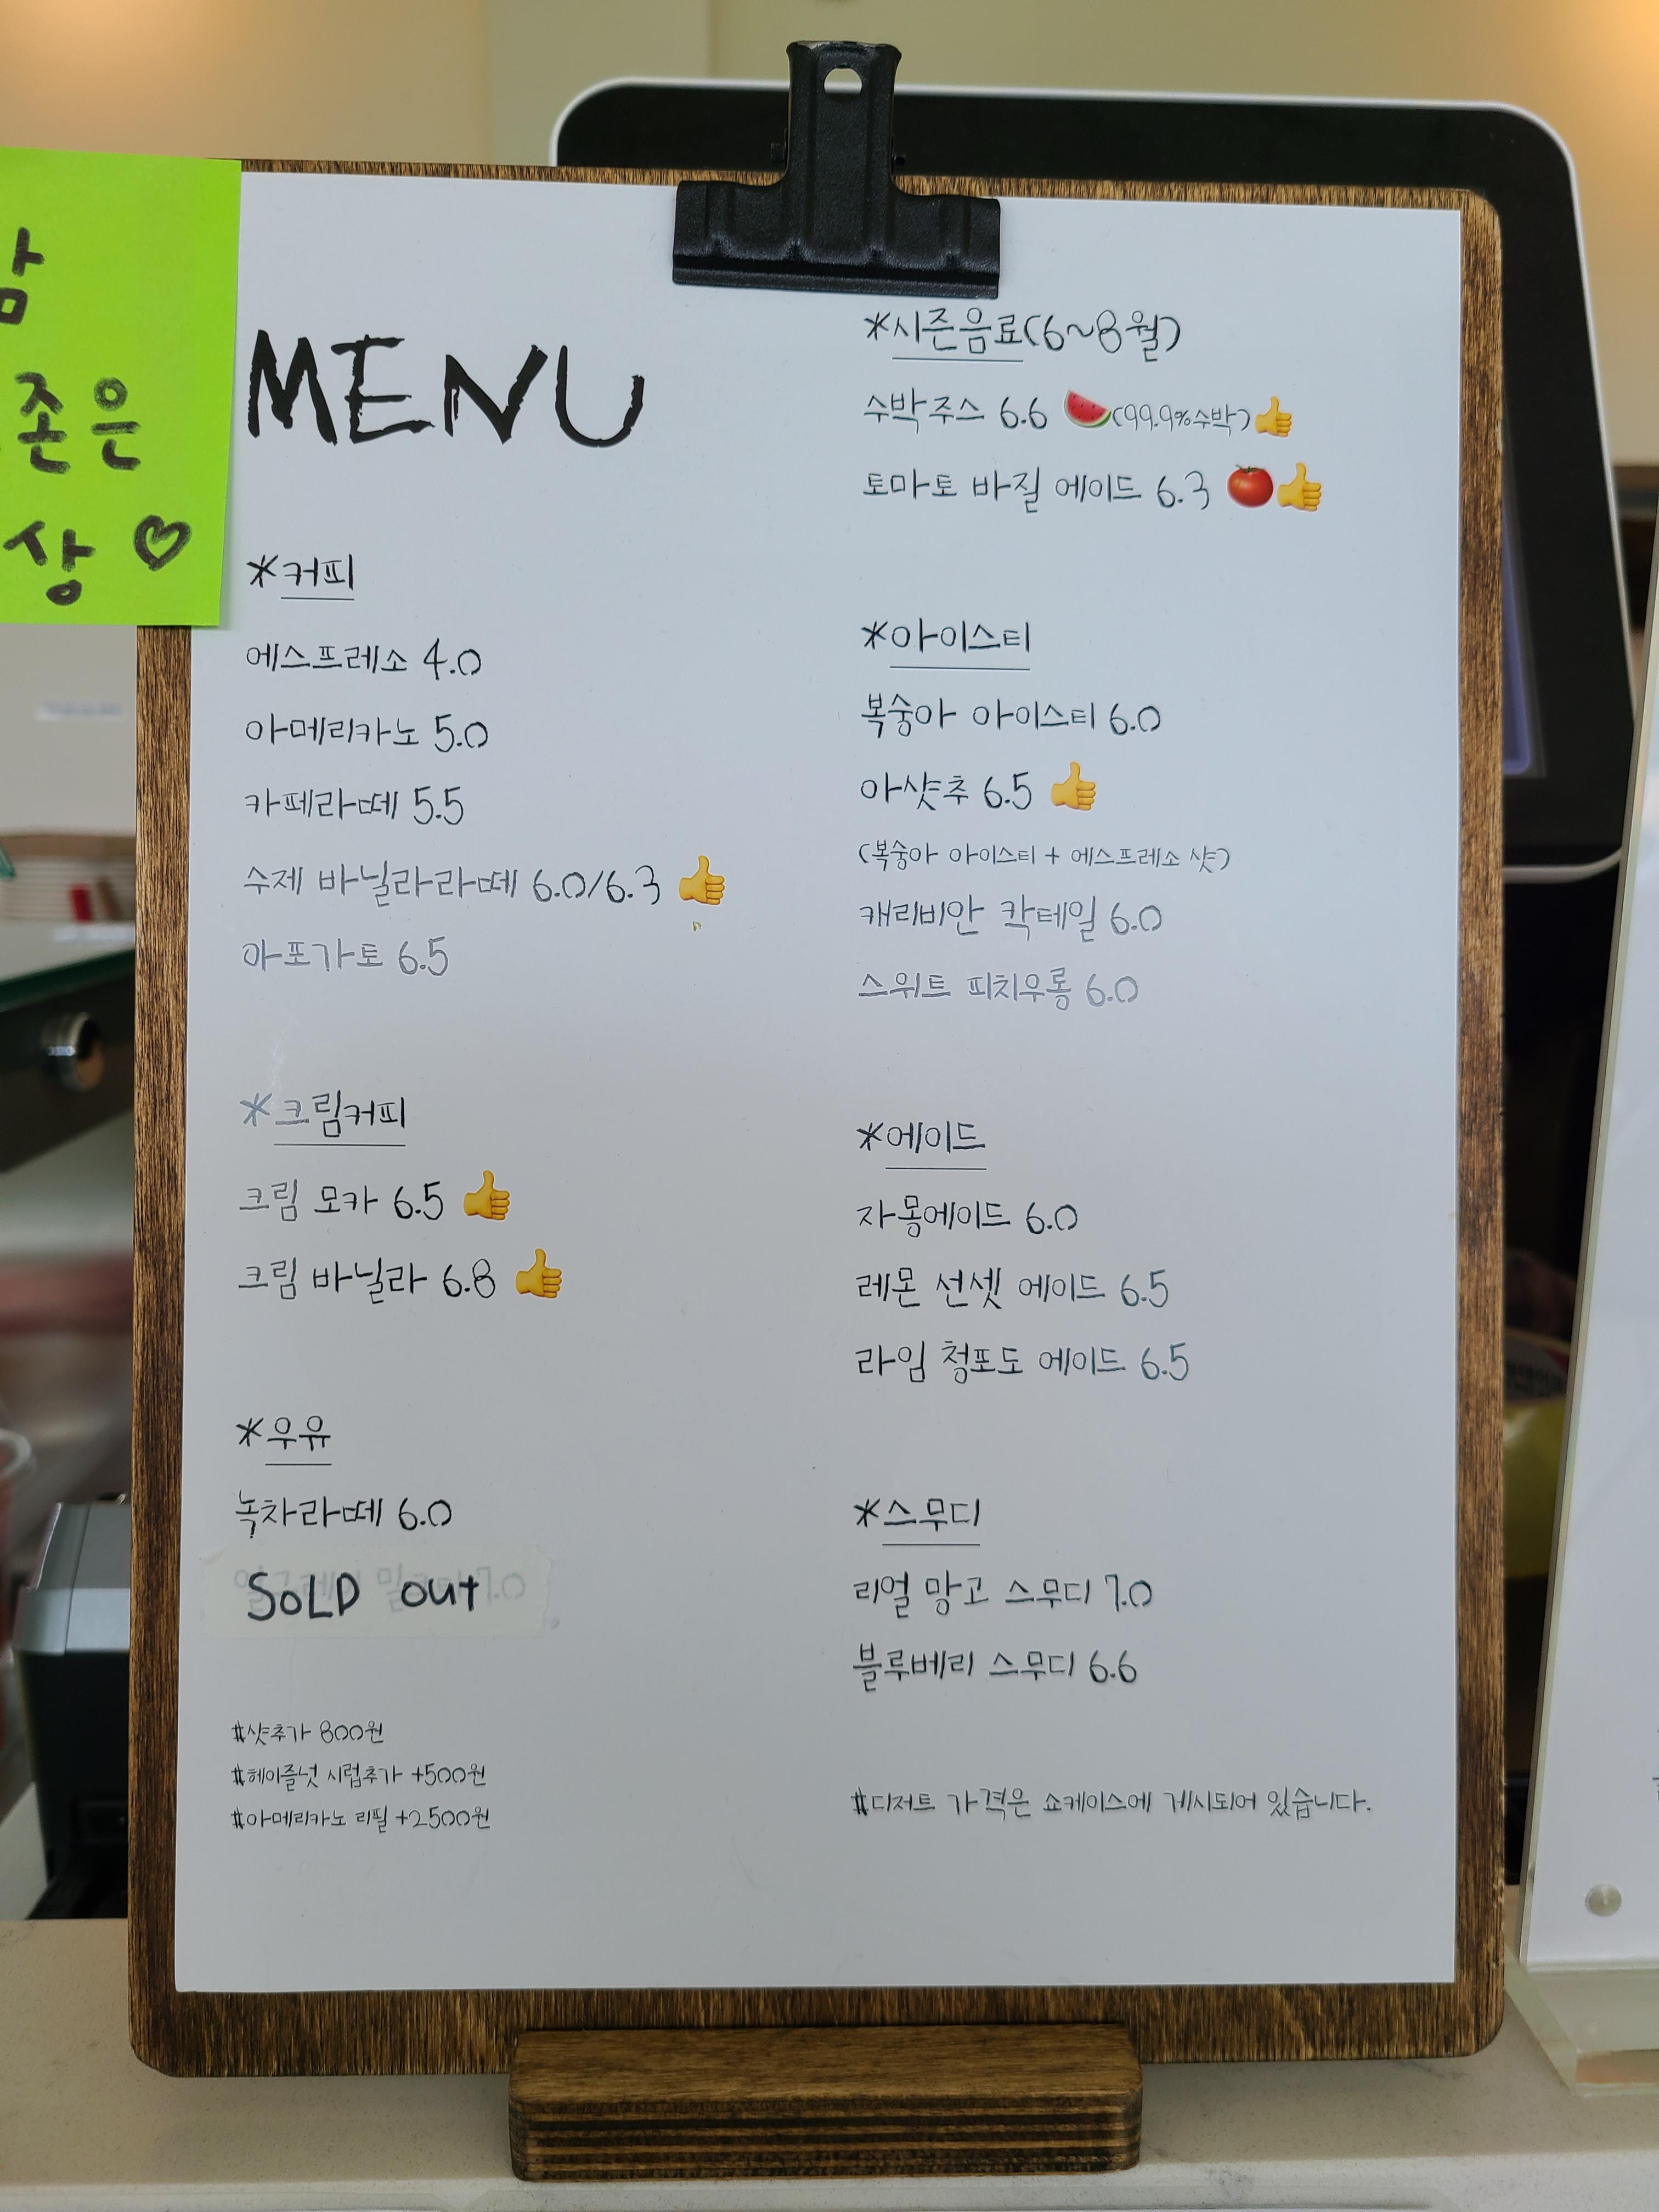 존은
상 ♡
MENU
*커피
에스프레소 4.0
아메리카노 5.0
카페라떼 5.5
수제 바닐라라떼 6.0/6.3 👍
아포가토 6.5
*크림커피
크림 모카 6.5 👍
크림 바닐라 6.8 👍
*우유
녹차라떼 6.0
SOLD out
#샷추가 800원
#헤이즐넛 시럽추가 +500원
#아메리카노 리필 +2500원
*시즌음료(6~8월)
수박주스 6.6 🍉(99.9%수박)👍
토마토 바질 에이드 6.3 🍅👍
*아이스티
복숭아 아이스티 6.0
아샷추 6.5 👍
(복숭아 아이스티 + 에스프레소 샷)
캐리비안 칵테일 6.0
스위트 피치우롱 6.0
*에이드
자몽에이드 6.0
레몬 선셋 에이드 6.5
라임 청포도 에이드 6.5
*스무디
리얼 망고 스무디 7.0
블루베리 스무디 6.6
#디저트 가격은 쇼케이스에 게시되어 있습니다.